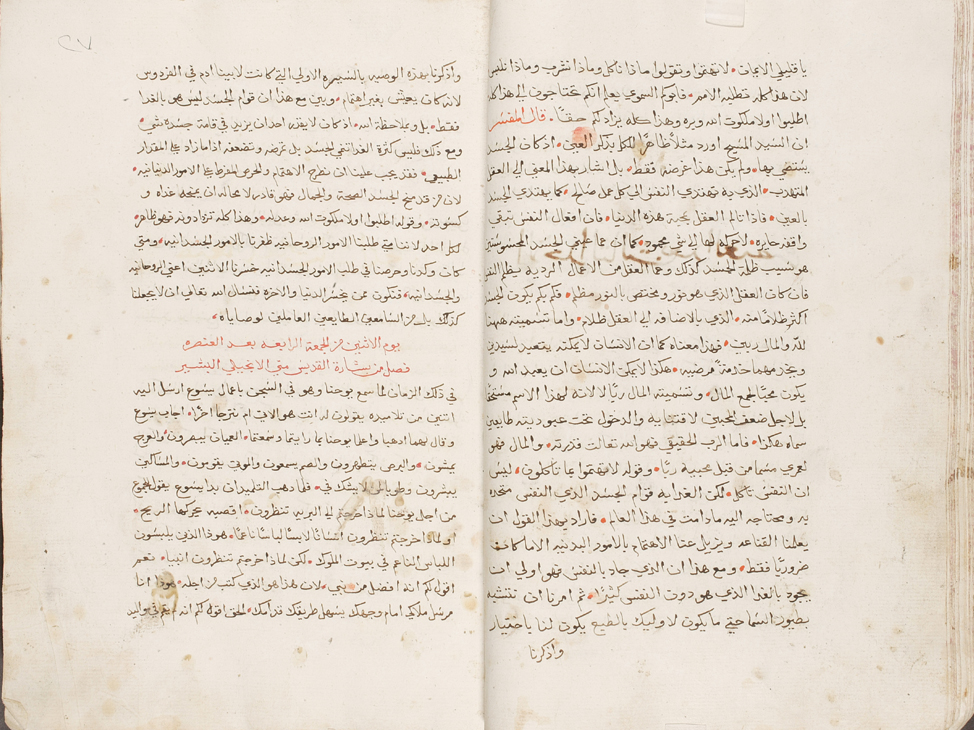 يا قليلي الامانات • لا تهتموا وتقولوا ماذا ناكل وماذا نشرب وماذا نلبس
لان هذا كله تطلبه الامم • فابوكم السموي يعلم انكم تحتاجون الى هذا كله
اطلبوا اولا ملكوت الله وبره وهذا كله يزاد لكم حقا • قال المفسر
ان السيد المسيح اورد مثلا ظاهرا للكل بذكر العين • اذ كان الجسد
يستضي بها • ولم يكن هذا غرضه فقط • بل اشار بهذا المعنى الى العقل
المتهذب • الذي به تهتدي النفس الى كل عمل صالح • كما يهتدي الجسد
بالعين • فاذا تالم العقل بمحبة هذه الدنيا • فان افعال النفس تبقى
واقفه حايره • لا حركة لها الى شي محمود • كما ان عما عيني الجسد المحسوستين
هو سبب ظلمة الجسد كذلك وعما العقل من الاعمال الردية يظلم النفس
فان كان العقل الذي هو نور ومختص بالنور مظلم • فكم بكم يكون الجسد
اكثر ظلاما منه • الذي بالاضافه الى العقل ظلام • واما تسميته ههنا
لله والمال ربين • فهذا معناه كما ان الانسان لا يمكنه يتعبد لسيدين
وينجز مهما خدمة مرضيه • هكذا لا يمكن الانسان ان يعبد الله و
يكون محبا لجمع المال • وتسميته المال ربا لا لانه لهذا الاسم مستحقا
بل لاجل ضعف المحبين لاقتنايه والدخول تحت عبوديته طايعين
سماه هكذا • فاما الرب الحقيقي فهو الله تعالت قدرته • والمال فهو
لعمري مسما من قبل محبيه ربا • وقوله لا تهتموا بما تاكلون • ليس
ان النفس تاكل • لكن الغدا به قوام الجسد الذي النفس متحده
به ومحتاجه اليه ما دامت في هذا العالم • فاراد بهذا القول ان
يعلمنا القناعه ويزيل عنا الاهتمام بالامور البدنيه الا ما كان
ضروريا فقط • ومع هذا ان الذي جاد بالنفس فهو اولى ان
يجود بالغدا الذي هو دون النفس كثيرا • ثم امرنا ان نتشبه
بطيور السما حتى ما يكون لاوليك بالطبع يكون لنا باختيار
واذكرنا
واذكرنا بهذه الوصيه بالسيره الاولى التي كانت لابينا ادم في الفردوس
لانه كان يعيش بغير اهتمام • وبين مع هذا ان قوام الجسد ليس هو بالغدا
فقط • بل وبملاحظة الله • اذ كان لا يقدر احد ان يزيد في قامة جسده شي •
ومع ذلك فليس كثرة الغدا تنمي الجسد بل تمرضه وتضعفه اذا ما زاد على المقدار
الطبيعي • فقد يجب علينا ان نطرح الاهتمام والحرص المفرط على الامور الدنيانيه •
لان من قد منح الجسد الصحة والجمال فهو قادر لا محاله ان يمنحه غداه و
كسوته • وقوله اطلبوا اولا ملكوت الله وعدله • وهذا كله تزدادونه فهو ظاهر •
لكل احد لاننا متى طلبنا الامور الروحانيه ظفرنا بالامور الجسدانيه • ومتى
كان وكدنا وحرصنا في طلب الامور الجسدانيه خسرنا الاثنين اعني الروحانيه
والجسدانيه • فنكون ممن يخسر الدنيا والاخره فنسال الله تعالى ان لا يجعلنا
كذلك بل من السامعين الطايعين العاملين لوصاياه •
يوم الاثنين من الجمعة الرابعه بعد العنصره
فصل من بشارة القديس متى الانجيلي البشير
في ذلك الزمان لما سمع يوحنا وهو في السجن باعمال يسوع ارسل اليه
اثنين من تلاميذه يقولون له انت هو الاتي ام نترجا اخر • اجاب يسوع
وقال لهما اذهبا واعلما يوحنا بما رايتما وسمعتما • العميان يبصرون • والعرج
يمشون • والبرص يتطهرون • والصم يسمعون والموتى يقومون • والمساكين
يبشرون • وطوبى لمن لا يشك في • فلما ذهب التلميذان بدا يسوع يقول للجموع
من اجل يوحنا لماذا خرجتم الى البريه تنظرون • اقصبه تحركها الريح •
او لماذا خرجتم تنظرون انسانا لابسا لباسا ناعما • هوذا الذين يلبسون
اللباس الناعم في بيوت الملوك • لكن لماذا خرجتم تنظرون انبيا • نعم
اقول لكم انه افضل من نبي • لان هذا هو الذي كتب من اجله • هوذا انا
مرسل ملاكي امام وجهك يسهل طريقك قدامك • الحق اقول لكم انه لم يقم في مواليد